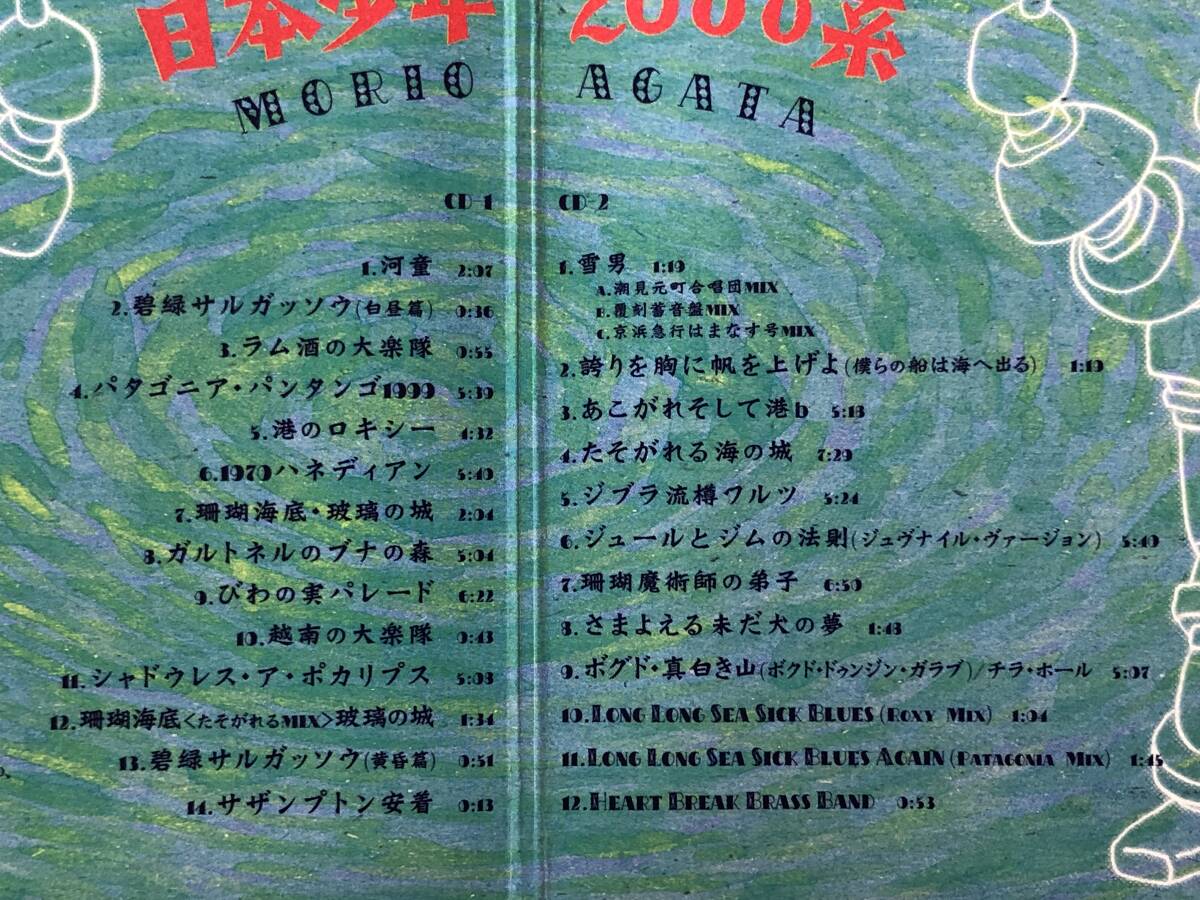 日本少年 2000系
MORIO AGATA
CD-1
1.河童 2:07
2.碧緑サルガッソウ(白昼篇) 0:36
3.ラム酒の大楽隊 0:55
4.パタゴニア・パンタンゴ1999 5:39
5.港のロキシー 4:32
6.1970ハネディアン 5:40
7.珊瑚海底・玻璃の城 2:04
8.ガルトネルのブナの森 5:04
9.びわの実パレード 6:22
10.越南の大楽隊 0:43
11.シャドウレス・ア・ポカリプス 5:03
12.珊瑚海底<たそがれるMIX>玻璃の城 1:34
13.碧緑サルガッソウ(黄昏篇) 0:51
14.サザンプトン安着 0:13
CD-2
1.雪男 1:19
A.潮見元町合唱団MIX
B.覆刻蓄音盤MIX
C.京浜急行はまなす号MIX
2.誇りを胸に帆を上げよ(僕らの船は海へ出る) 1:19
3.あこがれそして港b 5:13
4.たそがれる海の城 7:29
5.ジブラ流樽ワルツ 5:24
6.ジュールとジムの法則(ジュヴナイル・ヴァージョン) 5:49
7.珊瑚魔術師の弟子 6:50
8.さまよえる未だ犬の夢 1:43
9.ボグド・真白き山(ボクド・ドゥンジン・ガラブ)/チラ・ホール 5:07
10.LONG LONG SEA SICK BLUES (ROXY MIX) 1:04
11.LONG LONG SEA SICK BLUES AGAIN (PATAGONIA MIX) 1:45
12.HEART BREAK BRASS BAND 0:53